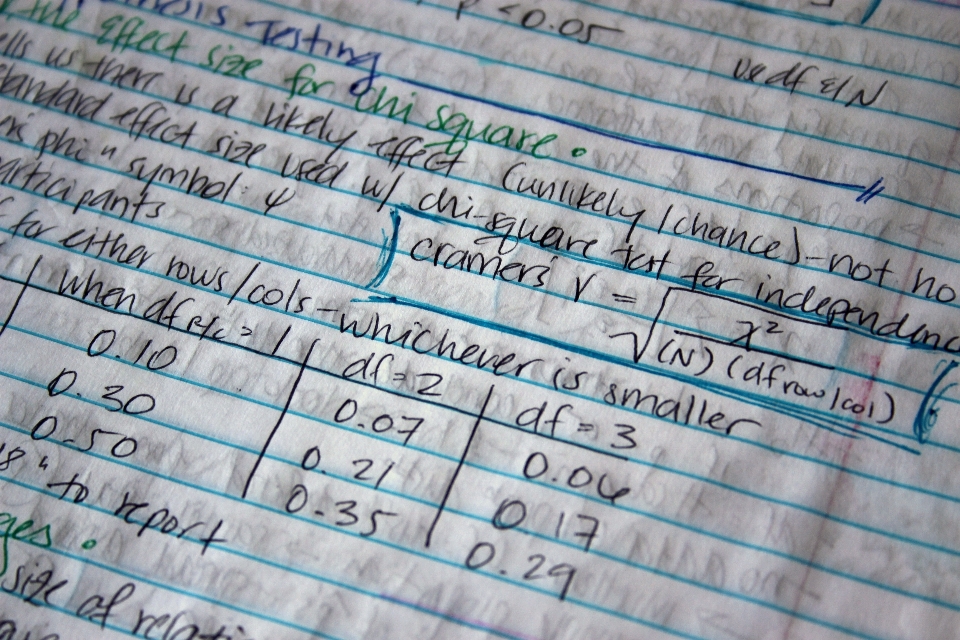 Testing p < 0.05
use df & N
the effect size for chi square.
tells us there is a likely effect (unlikely / chance) - not ho
standard effect size used w/ chi-square test for independenc
phi " symbol: φ
participants
cramers' V = √ χ² / (N) (df row/col)
for either rows/cols - whichever is smaller
when df r/c = 1 df = 2 df = 3
0.10 0.07 0.06
0.30 0.21 0.17
0.50 0.35 0.29
" to report
size of relati